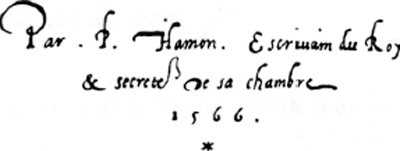 Par . P. Hamon. Escrivain du Roy
& secrete de sa chambre
1566.
*